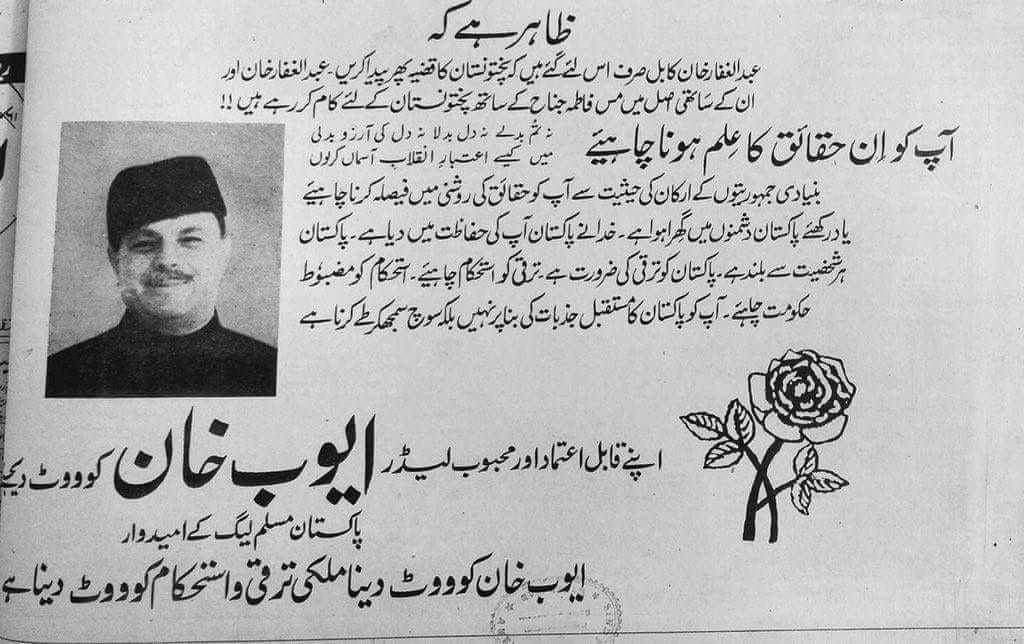 ظاہر ہے کہ
عبدالغفار خان کابل صرف اس لئے گئے ہیں کہ پختونستان کا قضیہ پھر پیدا کریں۔ عبدالغفار خان اور
ان کے ساتھی مہل میں مس فاطمہ جناح کے ساتھ پختونستان کے لئے کام کر رہے ہیں !!
آپ کو اِن حقائق کا عِلم ہونا چاہیئے
نہ تم بدلے نہ دل بدلا نہ دل کی آرزو بدلی
میں کیسے اعتبارِ انقلاب آسماں کرلوں
بنیادی جمہوریتوں کے ارکان کی حیثیت سے آپ کو حقائق کی روشنی میں فیصلہ کرنا چاہیئے
یاد رکھئے پاکستان دشمنوں میں گھرا ہوا ہے۔ خدا نے پاکستان آپ کی حفاظت میں دیا ہے۔ پاکستان
ہر شخصیت سے بلند ہے۔ پاکستان کو ترقی کی ضرورت ہے۔ ترقی کو استحکام چاہیئے۔ استحکام کو مضبوط
حکومت چاہئے۔ آپ کو پاکستان کا مستقبل جذبات کی بنا پر نہیں بلکہ سوچ سمجھ کر طے کرنا ہے
اپنے قابل اعتماد اور محبوب لیڈر ایوب خان کو ووٹ دیجئے
پاکستان مسلم لیگ کے امیدوار
ایوب خان کو ووٹ دینا ملکی ترقی و استحکام کو ووٹ دینا ہے